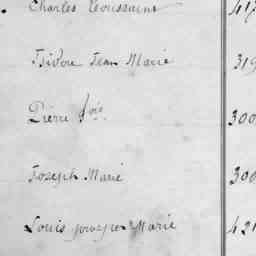 Charles Toussaint
Isidore Jean Marie 319
Pierre fois 300
Joseph Marie 300
Louis Marie 421